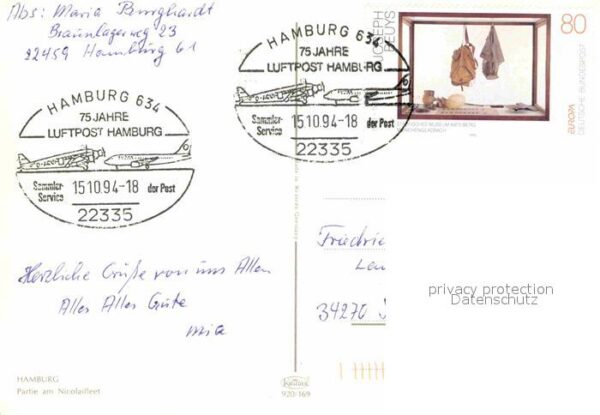 Abs: Maria Burghardt
Braunlagerweg 23
22459 Hamburg 61
HAMBURG 634
75 JAHRE
LUFTPOST HAMBURG
Sammler-
Service
15.10.94-18
der Post
22335
HAMBURG 634
75 JAHRE
LUFTPOST HAMBURG
Sammler-
Service
15.10.94-18
der Post
22335
JOSEPH
BEUYS
80
DEUTSCHE BUNDESPOST
EUROPA
MÖNCHENGLADBACH
Herzliche Grüße von uns Allen
Alles Alles Gute
Mia
Friedrie
34270
privacy protection
Datenschutz
HAMBURG
Partie am Nicolaifleet
KRÜGER
920-169